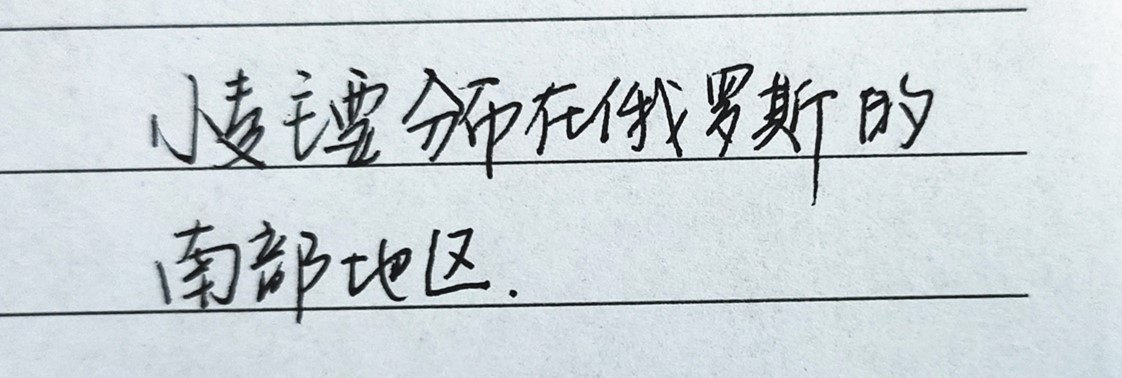 小麦主要分布在俄罗斯的
南部地区.